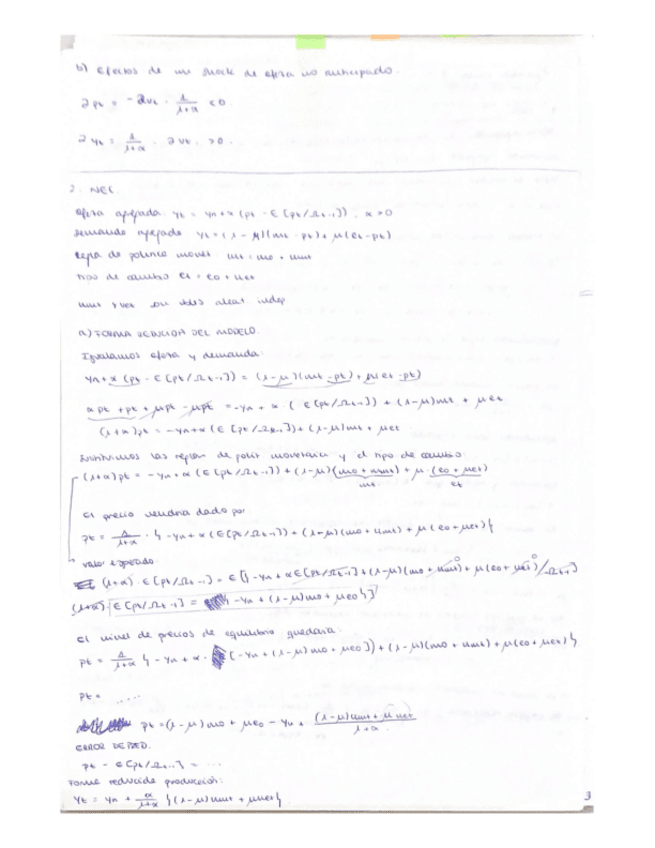 b) Efectos de un shock de oferta no anticipado.
∂pt = -∂vt · 1/(1+α) < 0.
∂yt = 1/(1+α) · ∂vt, > 0.
2. NEC.
Oferta agregada: yt = yn + α (pt - E[pt/Ωt-1]), α > 0
Demanda agregada yt = (1-μ)(mt - pt) + μ(et - pt)
regla de política monet mt = mo + umt
tipo de cambio et = eo + uet
umt y uet son vbles aleat indep
a) FORMA REDUCIDA DEL MODELO.
Igualamos oferta y demanda:
yn + α (pt - E[pt/Ωt-1]) = (1-μ)(mt - pt) + μ(et - pt)
αpt + pt + μpt - μpt = -yn + α (E[pt/Ωt-1]) + (1-μ)mt + μet
(1+α)pt = -yn + α (E[pt/Ωt-1]) + (1-μ)mt + μet
Sustituimos las reglas de polít monetaria y el tipo de cambio:
(1+α)pt = -yn + α (E[pt/Ωt-1]) + (1-μ)(mo + umt) + μ·(eo + uet)
mt et
El precio vendría dado por
pt = 1/(1+α) · { -yn + α (E[pt/Ωt-1]) + (1-μ)(mo + umt) + μ(eo + uet) }
valor esperado:
(1+α) · E[pt/Ωt-1] = E[{ -yn + αE[pt/Ωt-1] + (1-μ)(mo + umt)⁰ + μ(eo + uet)⁰ /Ωt-1]
(1+α) · E[pt/Ωt-1] = { -yn + (1-μ)mo + μeo }]
El nivel de precios de equilibrio quedará:
pt = 1/(1+α) { -yn + α · [-yn + (1-μ)mo + μeo]) + (1-μ)(mo + umt) + μ(eo + uet) }
pt = .....
pt = (1-μ)mo + μeo - yn + ((1-μ)umt + μuet)/(1+α)
ERROR DE PRED.
pt - E[pt/Ωt-1] = ...
Forma reducida producción:
yt = yn + α/(1+α) {(1-μ)umt + μuet}
3